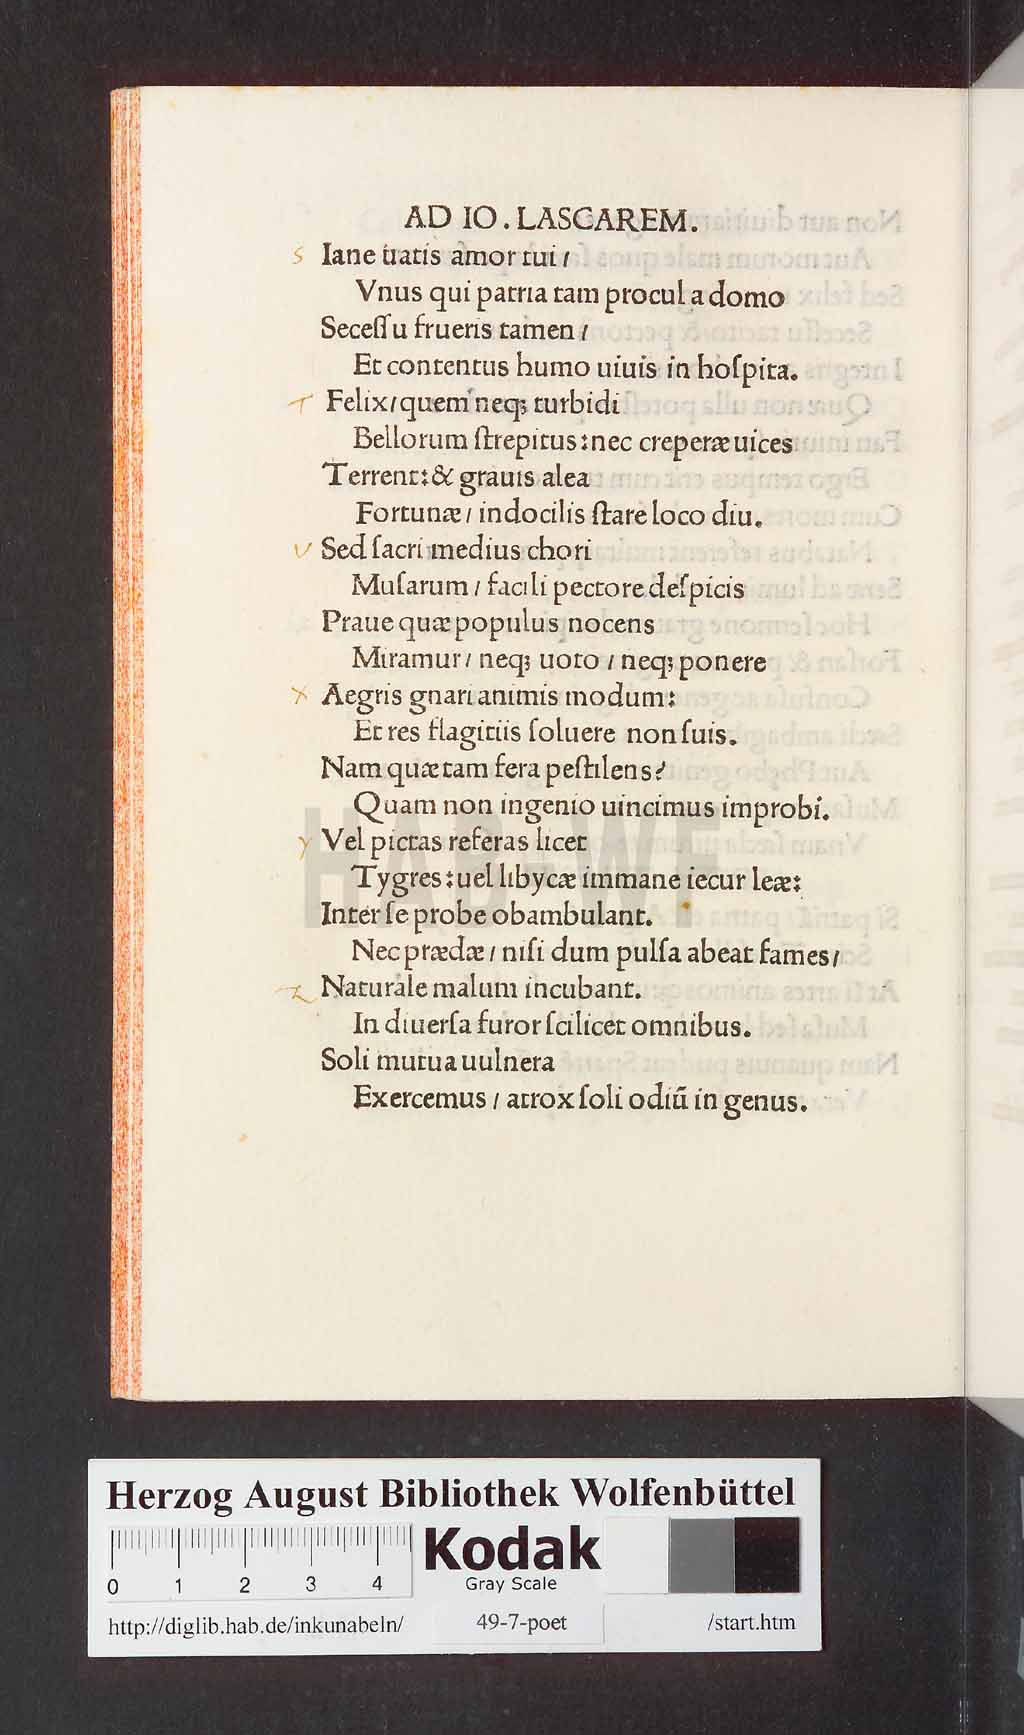 AD IO. LASCAREM.
S Iane uatis amor tui /
Vnus qui patria tam procul a domo
Seceſſu frueris tamen /
Et contentus humo uiuis in hoſpita.
T Felix / quem neq; turbidi
Bellorum ſtrepitus : nec creperæ uices
Terrent : & grauis alea
Fortunæ / indocilis ſtare loco diu.
V Sed ſacri medius chori
Muſarum / facili pectore deſpicis
Praue quæ populus nocens
Miramur / neq; uoto / neq; ponere
X Aegris gnari animis modum :
Et res flagitiis ſoluere non ſuis.
Nam quæ tam fera peſtilens?
Quam non ingenio uincimus improbi.
Y Vel pictas referas licet
Tygres : uel libycæ immane iecur leæ :
Inter ſe probe obambulant.
Nec prædæ / niſi dum pulſa abeat fames /
Z Naturale malum incubant.
In diuerſa furor ſcilicet omnibus.
Soli mutua uulnera
Exercemus / atrox ſoli odiū in genus.
HAB-WF
Herzog August Bibliothek Wolfenbüttel
0 1 2 3 4
Kodak
Gray Scale
http://diglib.hab.de/inkunabeln/ 49-7-poet /start.htm